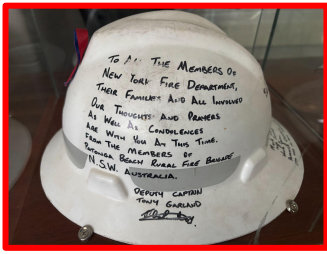 To All The Members Of
New York Fire Department,
Their Families And All Involved
Our Thoughts And Prayers
As Well As Condolences
Are With You At This Time.
From The Members Of
Patonga Beach Rural Fire Brigade
N.S.W. Australia.
Deputy Captain
Tony Garland